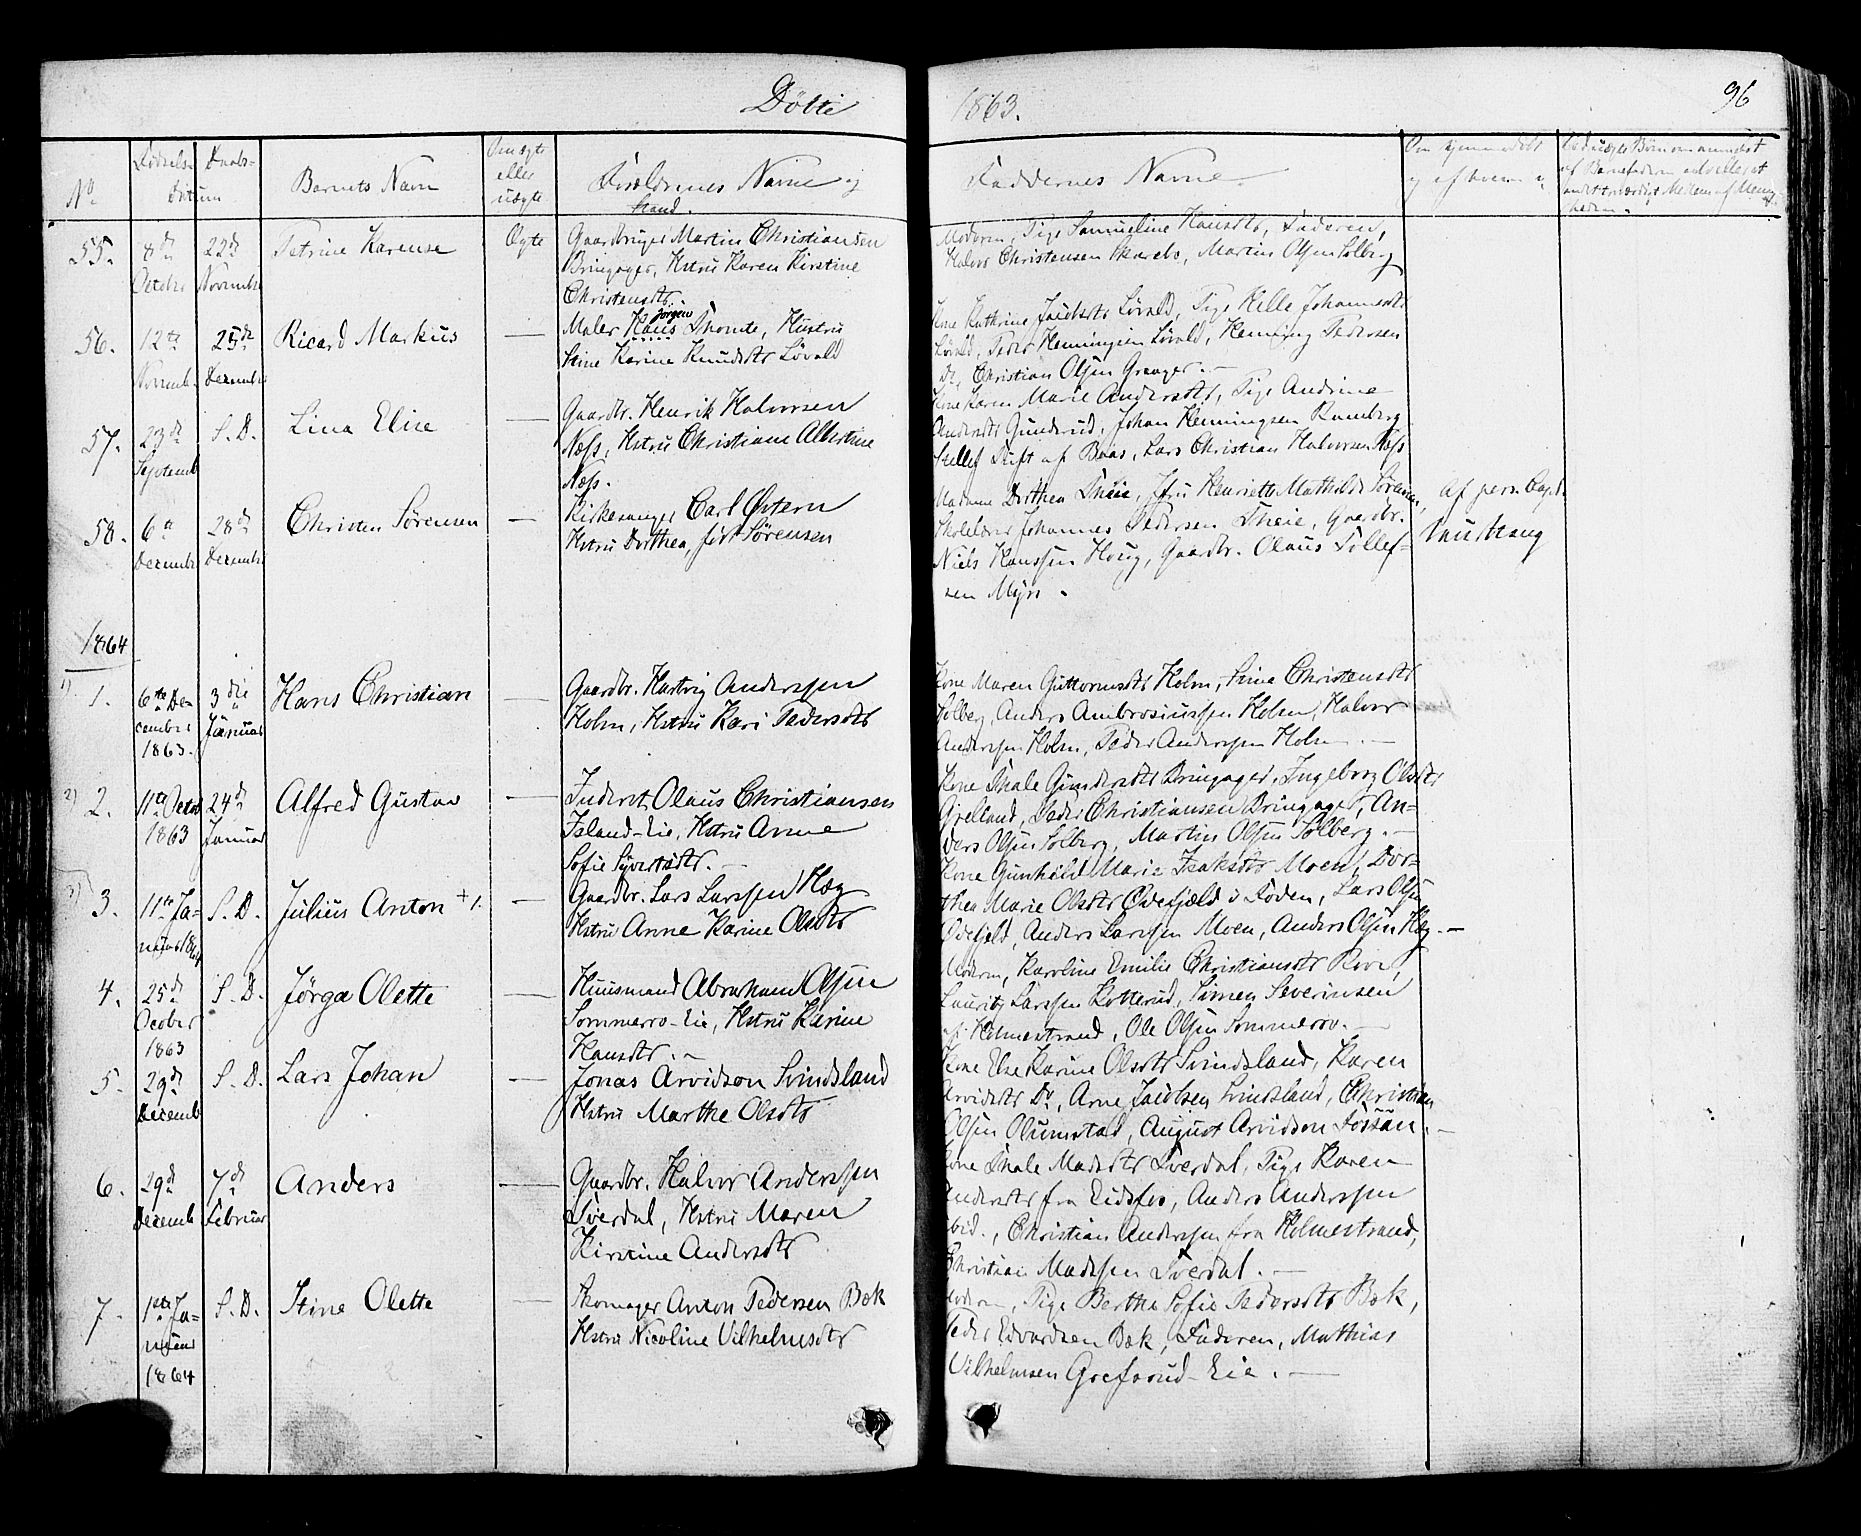 Døbte 1863. 96
No Fødsels Daabs- Datum Barnets Navn Om ægte eller uægte Forældrenes Navne og Stand. Faddernes Navne
55. 8de October 22de Novembr Petrine Karense Ægte
Gaardbruger Martin Christiansen
Bringager, Hstru Karen Kirstine
Christensdtr
Moderen, Pige Samueline Hansdtr, Faderen,
Halvor Christensen Skarebo, Martin Olsen Solberg
56. 12te Novemb. 25de Decembr Ricard Markus —
Maler Hans Jørgen Thomte, Hustru
Stine Karine Knudsdtr Løvald
Kone Kathrine Jacobsdtr Løvald, Pige Helle Johannesdtr
Løvald, Peder Henningsen Løvald, Henning Pedersen
Do, Christian Olsen Grenager. —
57. 23de Septemb S. D. Lina Elise —
Gaardbr. Henrik Halvorsen
Næss, Hstru Christiane Albertine
Næss.
Kone Karen Marie Andersdtr, Pige Andrine
Andersdtr Gunderud, Johan Henningsen Ramberg
Lars Christian Halvorsen Næss
58. 6te Decembr 28de Decembr Christen Sørensen —
Kirkesanger Carl Østern
Hstru Dorthea, født Sørensen
Madame Dorthea Theie, Jfru Henriette Mathilde Sørensen,
Skolelærer Johannes Pedersen Theie, Gaardbr.
Niels Hanssen Houg, Gaardbr. Olaus Tollef-
sen Myre.
Af pers. Capel.
1864
1) 1. 6te De- cember 1863. 3die Januar Hans Christian —
Gaardbr. Hartvig Anderssen
Holm, Hstru Kari Pedersdtr
Kone Maren Guttormsdtr Holm, Stine Christensdtr
Solberg, Anders Ambrosiussen Holm, Halvor
Anderssen Holm, Peder Anderssen Holm. —
2) 2. 11te Octob 1863 24de Januar Alfred Gustav —
Inderst. Olaus Christiansen
Island-Eie, Hstru Anne
Sofie Syvertsdtr. —
Kone Thale Gundersdtr Bringager, Ingeborg Olsdtr
Grelland, Peder Christiansen Bringager, An-
ders Olsen Solberg, Martin Olsen Solberg. —
3) 3. 11te Ja- nuar 1864 S. D. Julius Anton +1. —
Gaardbr. Lars Larssen Hæg
Hstru Anne Karine Olsdtr
Kone Gunhild Marie Isaksdtr Moen, Dor-
thea Marie Olsdtr Ødefjeld i Foden, Lars Olsen
Ødefjeld, Anders Larssen Moen, Anders Olsen Hæg. —
4. 25de Ocober 1863 S. D. Jørga Olette —
Huusmand Abraham Olsen
Sommerro-Eie, Hstru Karine
Hansdtr. —
Moderen, Karoline Emilie Christiansdtr Rove,
Lauritz Larssen Kotterud, Simen Severinsen
af Holmestrand, Ole Olsen Sommerro. —
5. 29de Decemb S. D. Lars Johan —
Jonas Arvidson Svindsland
Hstru Marthe Olsdtr
Kone Else Karine Olsdtr Svindsland, Karen
Arvidsdtr Do, Arne Jacobsen Svindsland, Christian
Olsen Olumstad, August Arvidson Fossan. —
6. 29de Decemb 7de Februar Anders —
Gaardbr. Halvor Anderssen
Sverdal, Hstru Maren
Kirstine Andersdtr
Kone Thale Madsdtr Sverdal, Pige Karen
Andersdtr fra Eidsfos, Anders Anderssen
ibid., Christian Anderssen fra Holmestrand,
Christian Madssen Sverdal. —
7. 1ste Ja- nuar 1864 S. D. Stine Olette —
Skomager Anton Pedersen Bæk
Hstru Nicoline Vilhelmsdtr
Moderen, Pige Berthe Sofie Pedersdtr Bæk,
Peder Edvardsen Bæk, Faderen, Mathias
Vilhelmsen Grefsrud-Eie. —